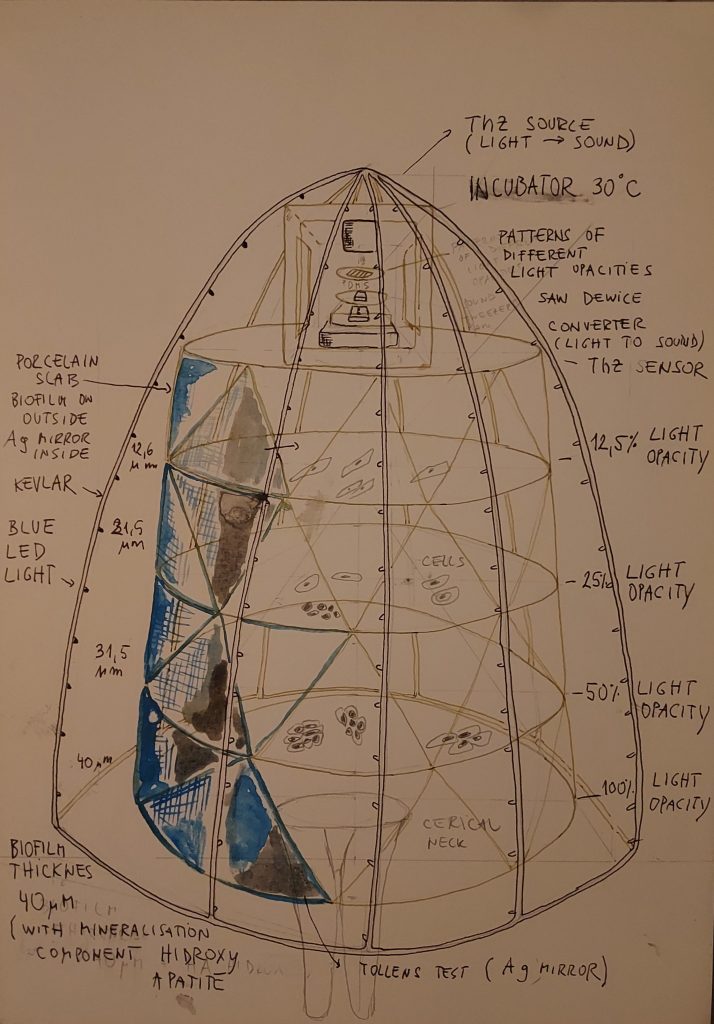 THZ SOURCE
(LIGHT → SOUND)
INCUBATOR 30°C
PATTERNS OF
DIFFERENT
LIGHT OPACITIES
SAW DEWICE
CONVERTER
(LIGHT TO SOUND)
THZ SENSOR
PORCELAIN
SLAB
BIOFILM ON
OUTSIDE
Ag MIRROR
INSIDE
12,6
µm
12,5% LIGHT
OPACITY
KEVLAR
21,5
µm
BLUE
LED
LIGHT
CELLS
25% LIGHT
OPACITY
31,5
µm
50% LIGHT
OPACITY
40 µm
100% LIGHT
OPACITY
CERICAL
NECK
BIOFILM
THICKNES
40µM
(WITH MINERALISATION
COMPONENT HIDROXY
APATITE
TOLLENS TEST (Ag MIRROR)